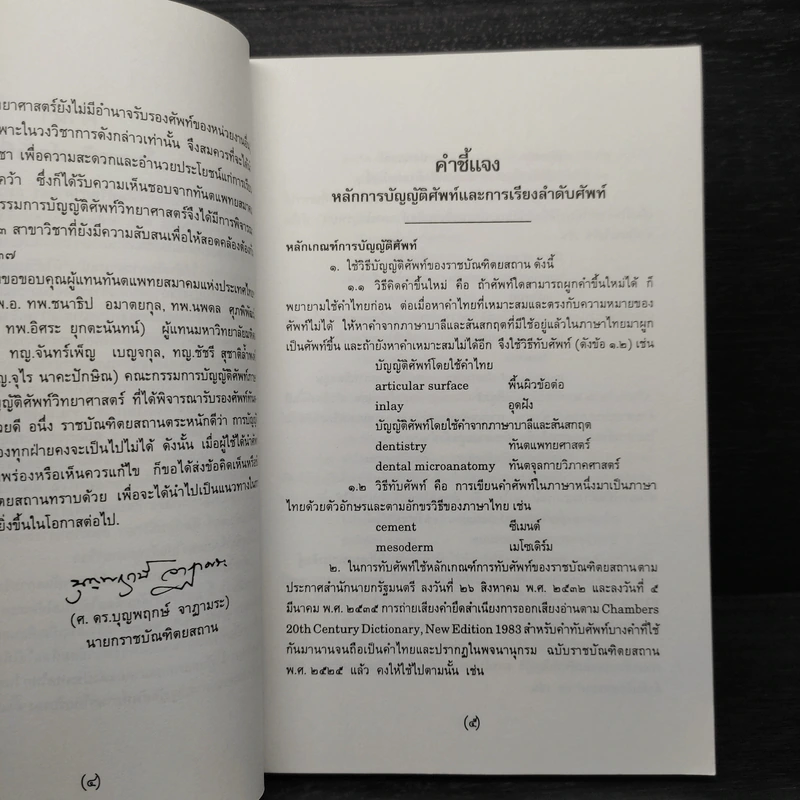 ทยาศาสตร์ยังไม่มีอำนาจรับรองศัพท์ของหน่วยงานอื่น
พาะในวงวิชาการดังกล่าวเท่านั้น จึงสมควรที่จะได้
ชา เพื่อความสะดวกและอำนวยประโยชน์แก่การเรียน
คว้า ซึ่งก็ได้รับความเห็นชอบจากทันตแพทยสมาคม
รรมการบัญญัติศัพท์วิทยาศาสตร์จึงได้มีการพิจารณา
๓ สาขาวิชาที่ยังมีความสับสนเพื่อให้สอดคล้องต้องกัน
๓๗
ขอขอบคุณผู้แทนทันตแพทยสมาคมแห่งประเทศไทย
พ.อ. ทพ.ชนาธิป อมาตยกุล, ทพ.นพดล ศุภพิพัฒน์
ทพ.อิศระ ยุกตะนันทน์) ผู้แทนมหาวิทยาลัยมหิดล
ทญ.จันทร์เพ็ญ เบญจกุล, ทญ.ชัชรี สุชาติล้ำพงศ์
ญ.จุไร นาคะปักษิณ) คณะกรรมการบัญญัติศัพท์ภาษา
ญญัติศัพท์วิทยาศาสตร์ ที่ได้พิจารณารับรองศัพท์ทันต
วยดี อนึ่ง ราชบัณฑิตยสถานตระหนักดีว่า การบัญญัติ
องทุกฝ่ายคงจะเป็นไปไม่ได้ ดังนั้น เมื่อผู้ใช้ได้นำศัพท์
พร่องหรือเห็นควรแก้ไข ก็ขอได้ส่งข้อคิดเห็นหรือ
ตยสถานทราบด้วย เพื่อจะได้นำไปเป็นแนวทางใน
ยิ่งขึ้นในโอกาสต่อไป.
(ศ. ดร.บุญพฤกษ์ จาฏามระ)
นายกราชบัณฑิตยสถาน
(๔)
คำชี้แจง
หลักการบัญญัติศัพท์และการเรียงลำดับศัพท์
หลักเกณฑ์การบัญญัติศัพท์
๑. ใช้วิธีบัญญัติศัพท์ของราชบัณฑิตยสถาน ดังนี้
๑.๑ วิธีคิดคำขึ้นใหม่ คือ ถ้าศัพท์ใดสามารถผูกคำขึ้นใหม่ได้ ก็
พยายามใช้คำไทยก่อน ต่อเมื่อหาคำไทยที่เหมาะสมและตรงกับความหมายของ
ศัพท์ไม่ได้ ให้หาคำจากภาษาบาลีและสันสกฤตที่มีใช้อยู่แล้วในภาษาไทยมาผูก
เป็นศัพท์ขึ้น และถ้ายังหาคำเหมาะสมไม่ได้อีก จึงใช้วิธีทับศัพท์ (ดังข้อ ๑.๒) เช่น
บัญญัติศัพท์โดยใช้คำไทย
articular surface พื้นผิวข้อต่อ
inlay อุดฝัง
บัญญัติศัพท์โดยใช้คำจากภาษาบาลีและสันสกฤต
dentistry ทันตแพทยศาสตร์
dental microanatomy ทันตจุลกายวิภาคศาสตร์
๑.๒ วิธีทับศัพท์ คือ การเขียนคำศัพท์ในภาษาหนึ่งมาเป็นภาษา
ไทยด้วยตัวอักษรและตามอักขรวิธีของภาษาไทย เช่น
cement ซีเมนต์
mesoderm เมโซเดิร์ม
๒. ในการทับศัพท์ใช้หลักเกณฑ์การทับศัพท์ของราชบัณฑิตยสถานตาม
ประกาศสำนักนายกรัฐมนตรี ลงวันที่ ๒๖ สิงหาคม พ.ศ. ๒๕๓๒ และลงวันที่ ๕
มีนาคม พ.ศ. ๒๕๓๕ การถ่ายเสียงคำยึดสำเนียงการออกเสียงอ่านตาม Chambers
20th Century Dictionary, New Edition 1983 สำหรับคำทับศัพท์บางคำที่ใช้
กันมานานจนถือเป็นคำไทยและปรากฏในพจนานุกรม ฉบับราชบัณฑิตยสถาน
พ.ศ. ๒๕๒๕ แล้ว คงให้ใช้ไปตามนั้น เช่น
(๕)